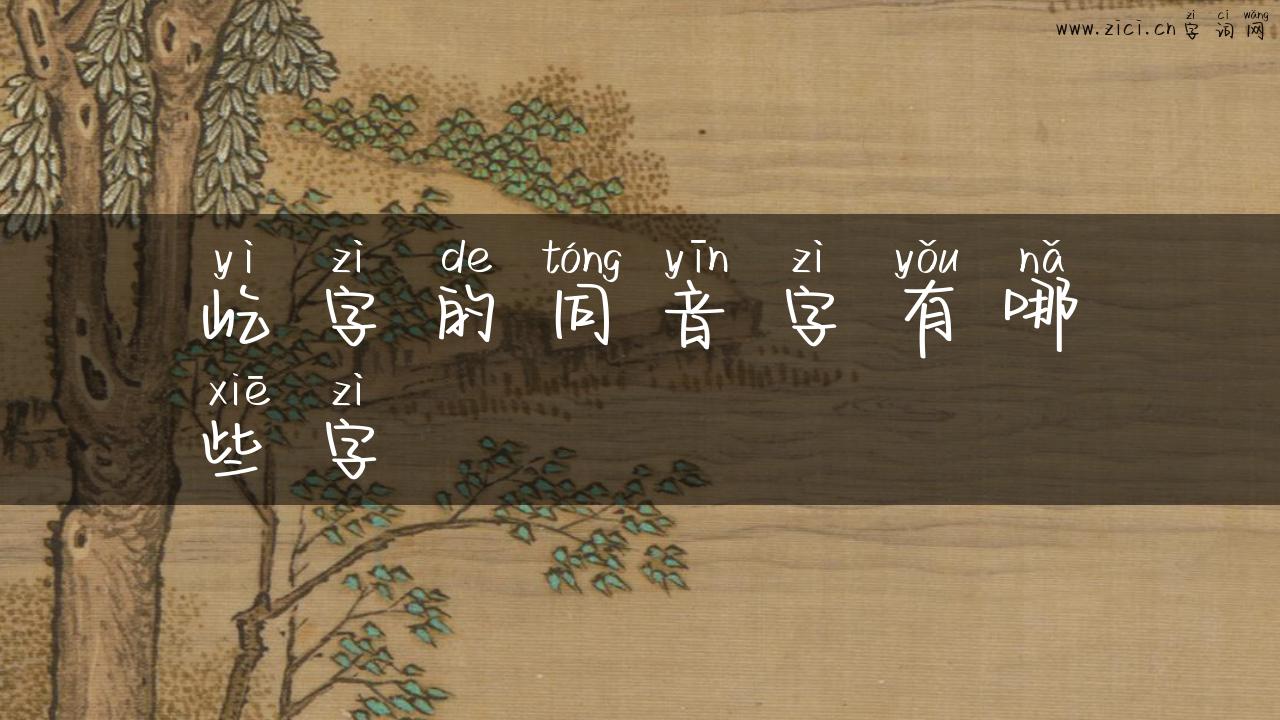 zì cí wǎng
www.zici.cn 字词网
yì zì de tóng yīn zì yǒu nǎ
屹字的同音字有哪
xiē zì
些字